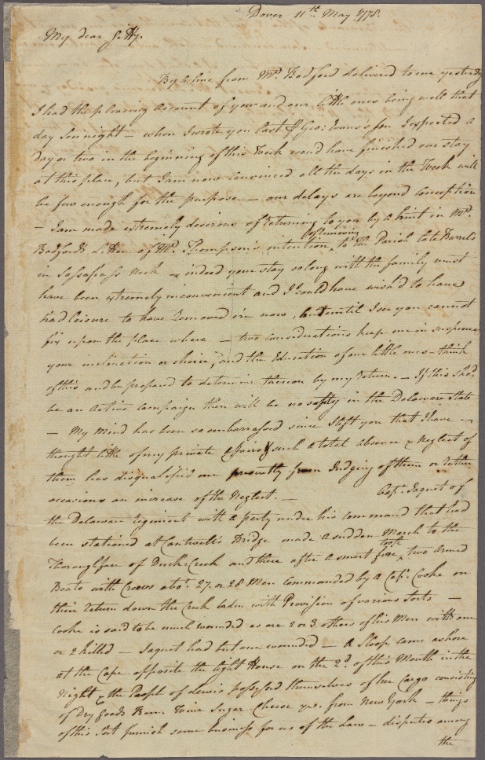 Dover 11th. May 1778.
My dear G:Hy.
By a line from Mr. Bedford delivered to me yesterday
I had the pleasing account of you and our little ones being well that
day Sen'night – when I wrote you last Geo: Evans's son I expected a
day or two in the beginning of this Week would have finished our stay
at this place, but I am now convinced all the days in the Week will
be few enough for the purpose – our delays are beyond conception
– I am made extremely desirous of returning to you by a hint in Mr.
Bedford's Letter of Mr. Thompson's intention of removing to the Parish late Reeds
in Sassafrass Neck – indeed your stay so long with the family must
have been extremely inconvenient and I could have wish'd to have
had leisure to have removed o'er now, but until I see you cannot
fix upon the place where – two considerations keep me in suspence
your inclination or choice, and the Education of our little ones – think
of this and be prepared to determine thereon by my return. – If this shod.
be an Active Campaign there will be no safety in the Delaware State
– My Mind has been so embarrassed since I left you that I have
thought little of my private affairs, such a total absence & Neglect of
them has disqualified me from Judging of them or rather
occasions an increase of the Neglect. – Capt. Jaquet of
the Delaware regiment with a party under his command that had
been stationed at Cantwell's Bridge made a sudden March to the
Thoroughfare of Duck-Creek and there after a smart fire took two Armed
Boats with Crews abot. 27 or 28 Men commanded by a Capt. Cooke on
their return down the Creek laden with Provision of various sorts –
Cooke is said to be much wounded as are 2 or 3 others of his Men with one
or 2 killed – Jaquet had but one wounded – A Sloop came ashore
at the Cape opposite the light House on the 2d. of this Month in the
Night & the People of Lewis possessed themselves of her Cargo consisting
of Dry goods Rum Wine Sugar Cheese &c. from New York – things
of this Sort furnish some business for us of the Law – disputes among
the